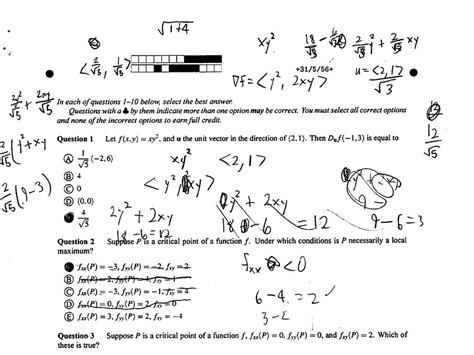 √1+4
<2/√5, 1/√5>
xy² 18/√5 - 6/√5 2/√5 y² + 2/√5 xy
+31/5/56+
∇f = <y², 2xy> u = <2,1> / √3
2y²/√5 + 2xy/√5
In each of questions 1–10 below, select the best answer.
Questions with a ♣ by them indicate more than one option may be correct. You must select all correct options
and none of the incorrect options to earn full credit.
12/√5
2/√5 (y² + xy
Question 1 Let f(x, y) = xy², and u the unit vector in the direction of ⟨2, 1⟩. Then Dᵤf(−1, 3) is equal to
Ⓐ 1/√5 ⟨−2, 6⟩ xy² <2,1>
Ⓑ 4
2/√5 (9-3)
Ⓒ 0 <y², 2xy> 2y² + 2xy
Ⓓ ⟨0, 0⟩ 18 - 6 = 12 9-6=3
4/√5 2y² + 2xy
18-6=12
Question 2 Suppose P is a critical point of a function f. Under which conditions is P necessarily a local
maximum?
fxx < 0
fxx(P) = −3, fyy(P) = −2, fxy = 2
Ⓑ fxx(P) = −2, fyy(P) = −4, fxy = 4
Ⓒ fxx(P) = −3, fyy(P) = −1, fxy = 4
Ⓓ fxx(P) = 0, fyy(P) = −2, fxy = 0
Ⓔ fxx(P) = 3, fyy(P) = 2, fxy = −4
6-4=2✓
3-4
Question 3 Suppose P is a critical point of a function f, fxx(P) = 0, fyy(P) = 0, and fxy(P) = 2. Which of
these is true?